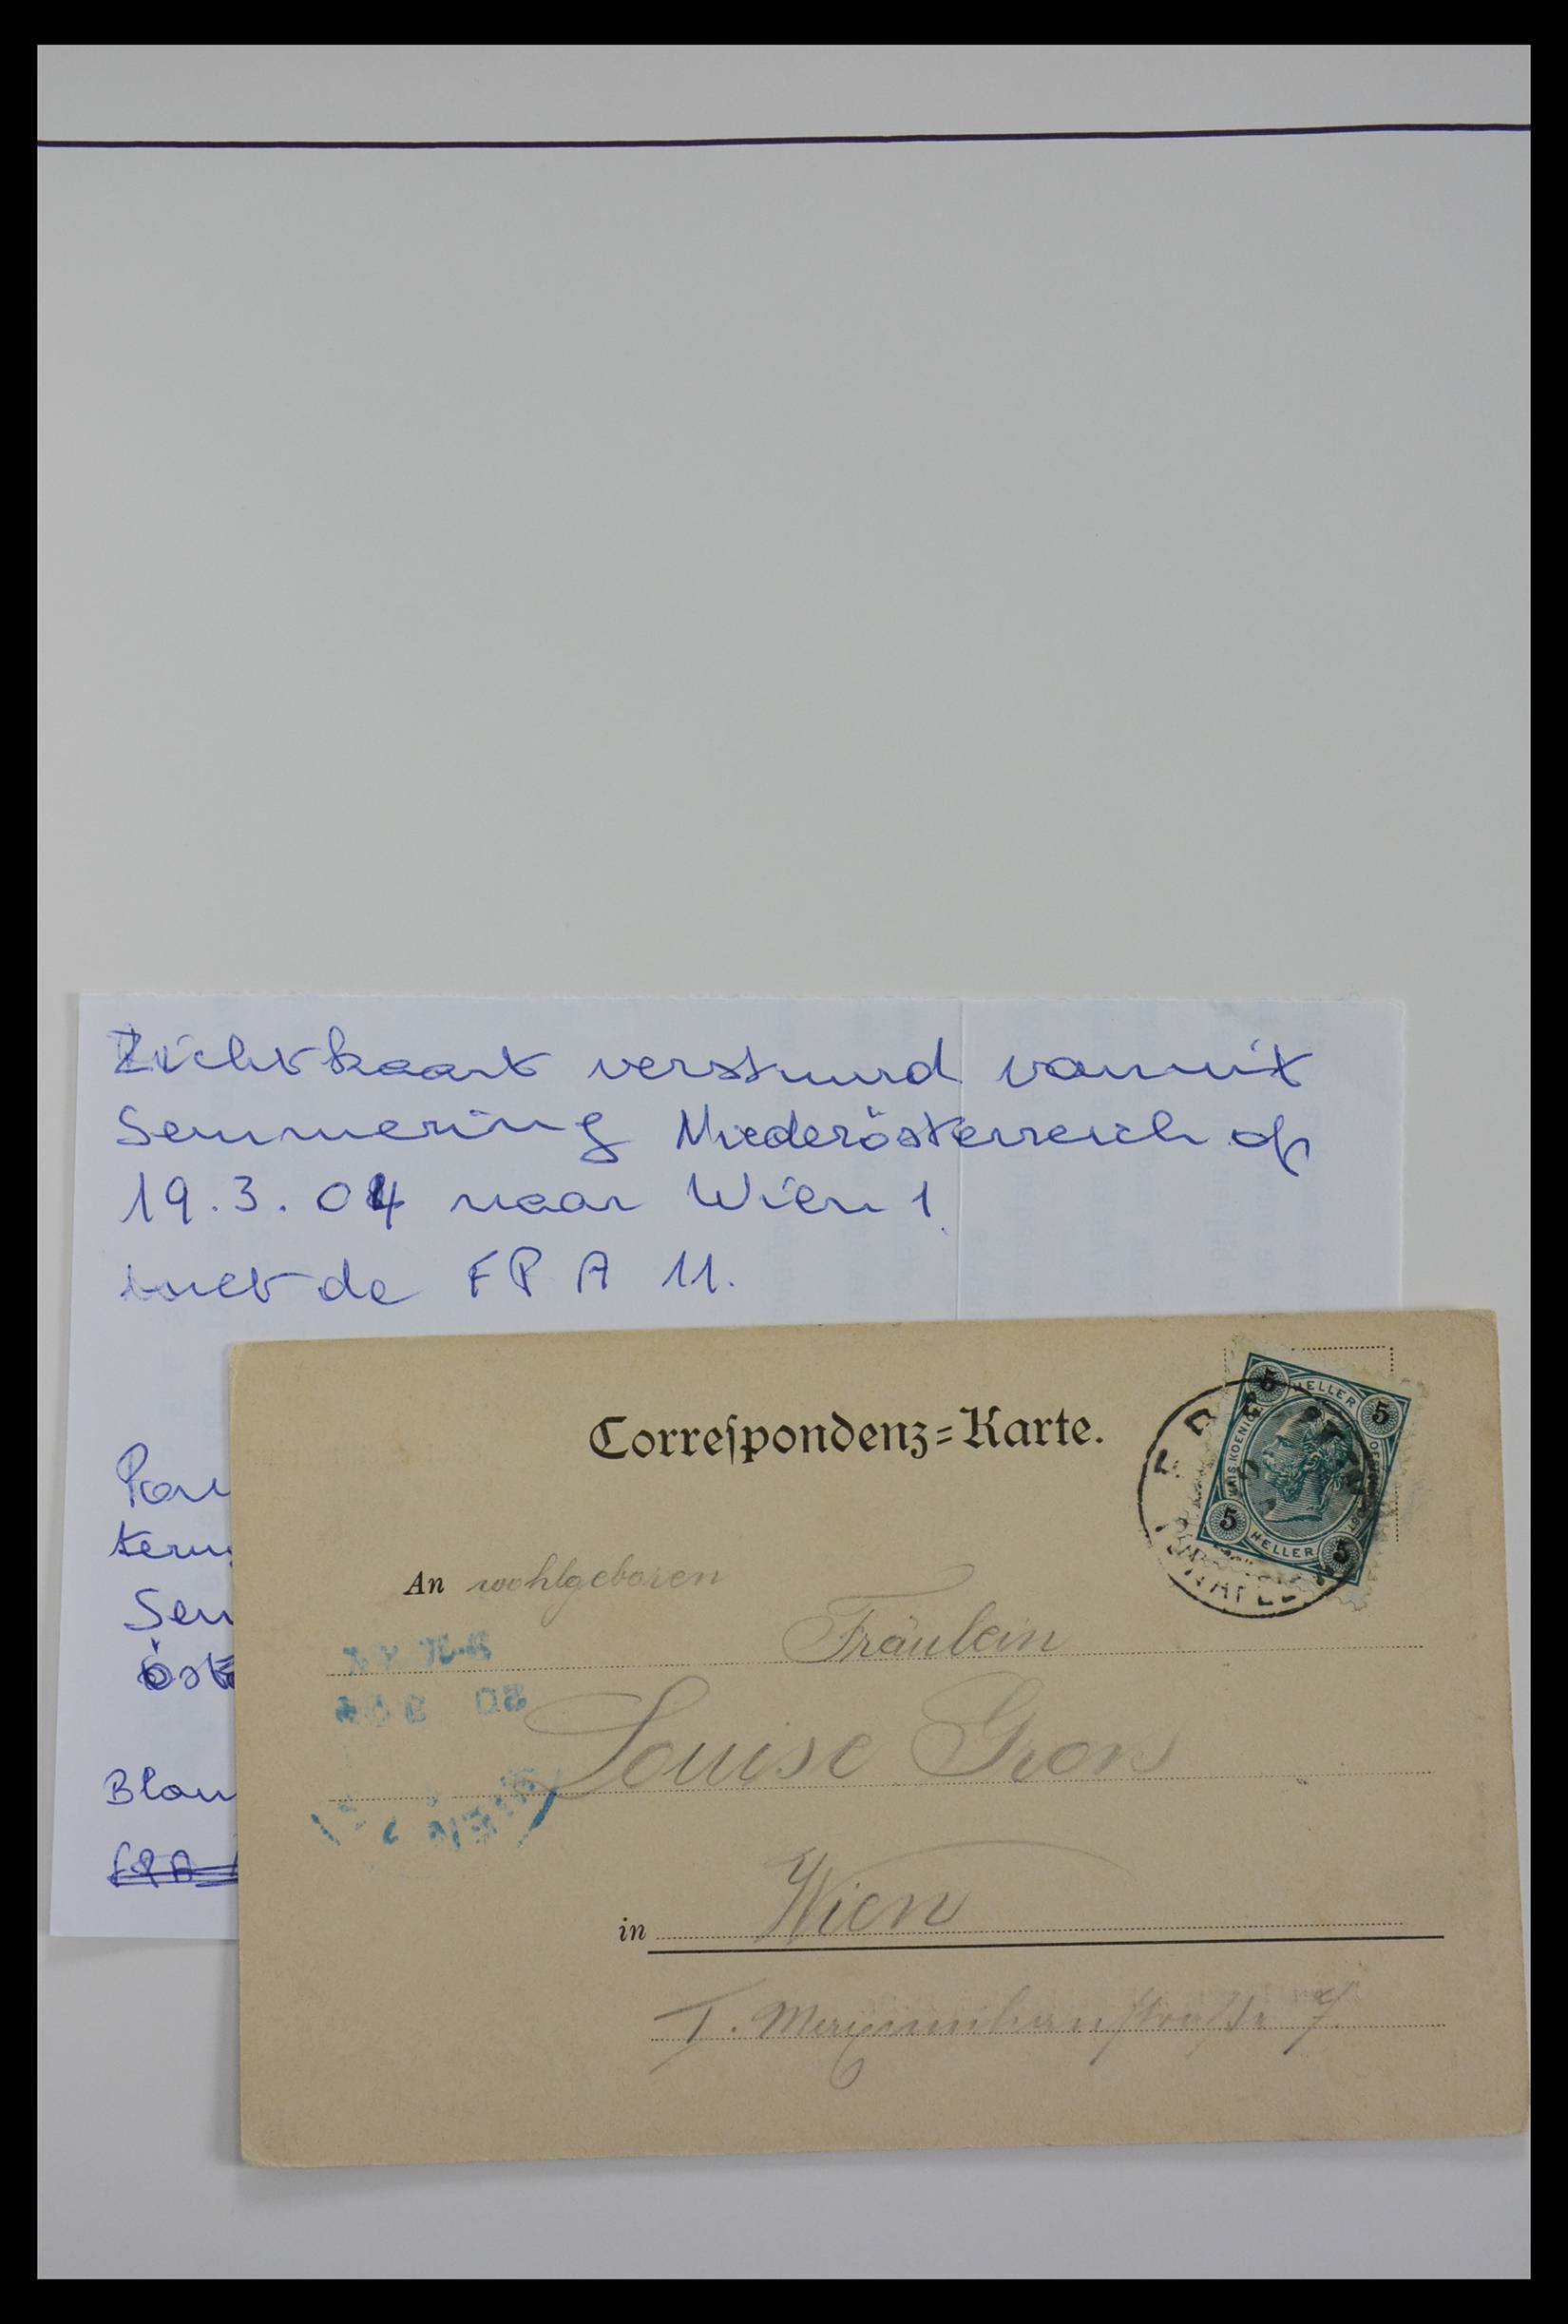 Zichtkaart verstuurd vanuit
Semmering Niederösterreich op
19.3.04 naar Wien 1
met de FPA 11.
Sem
öste
Blau
FPA
Correspondenz-Karte.
5 HELLER 5
5 HELLER 5
An wohlgeboren
Fräulein
Louise Grons
20 3 04
WIEN
in Wien
I. Maximilianstraße 7.